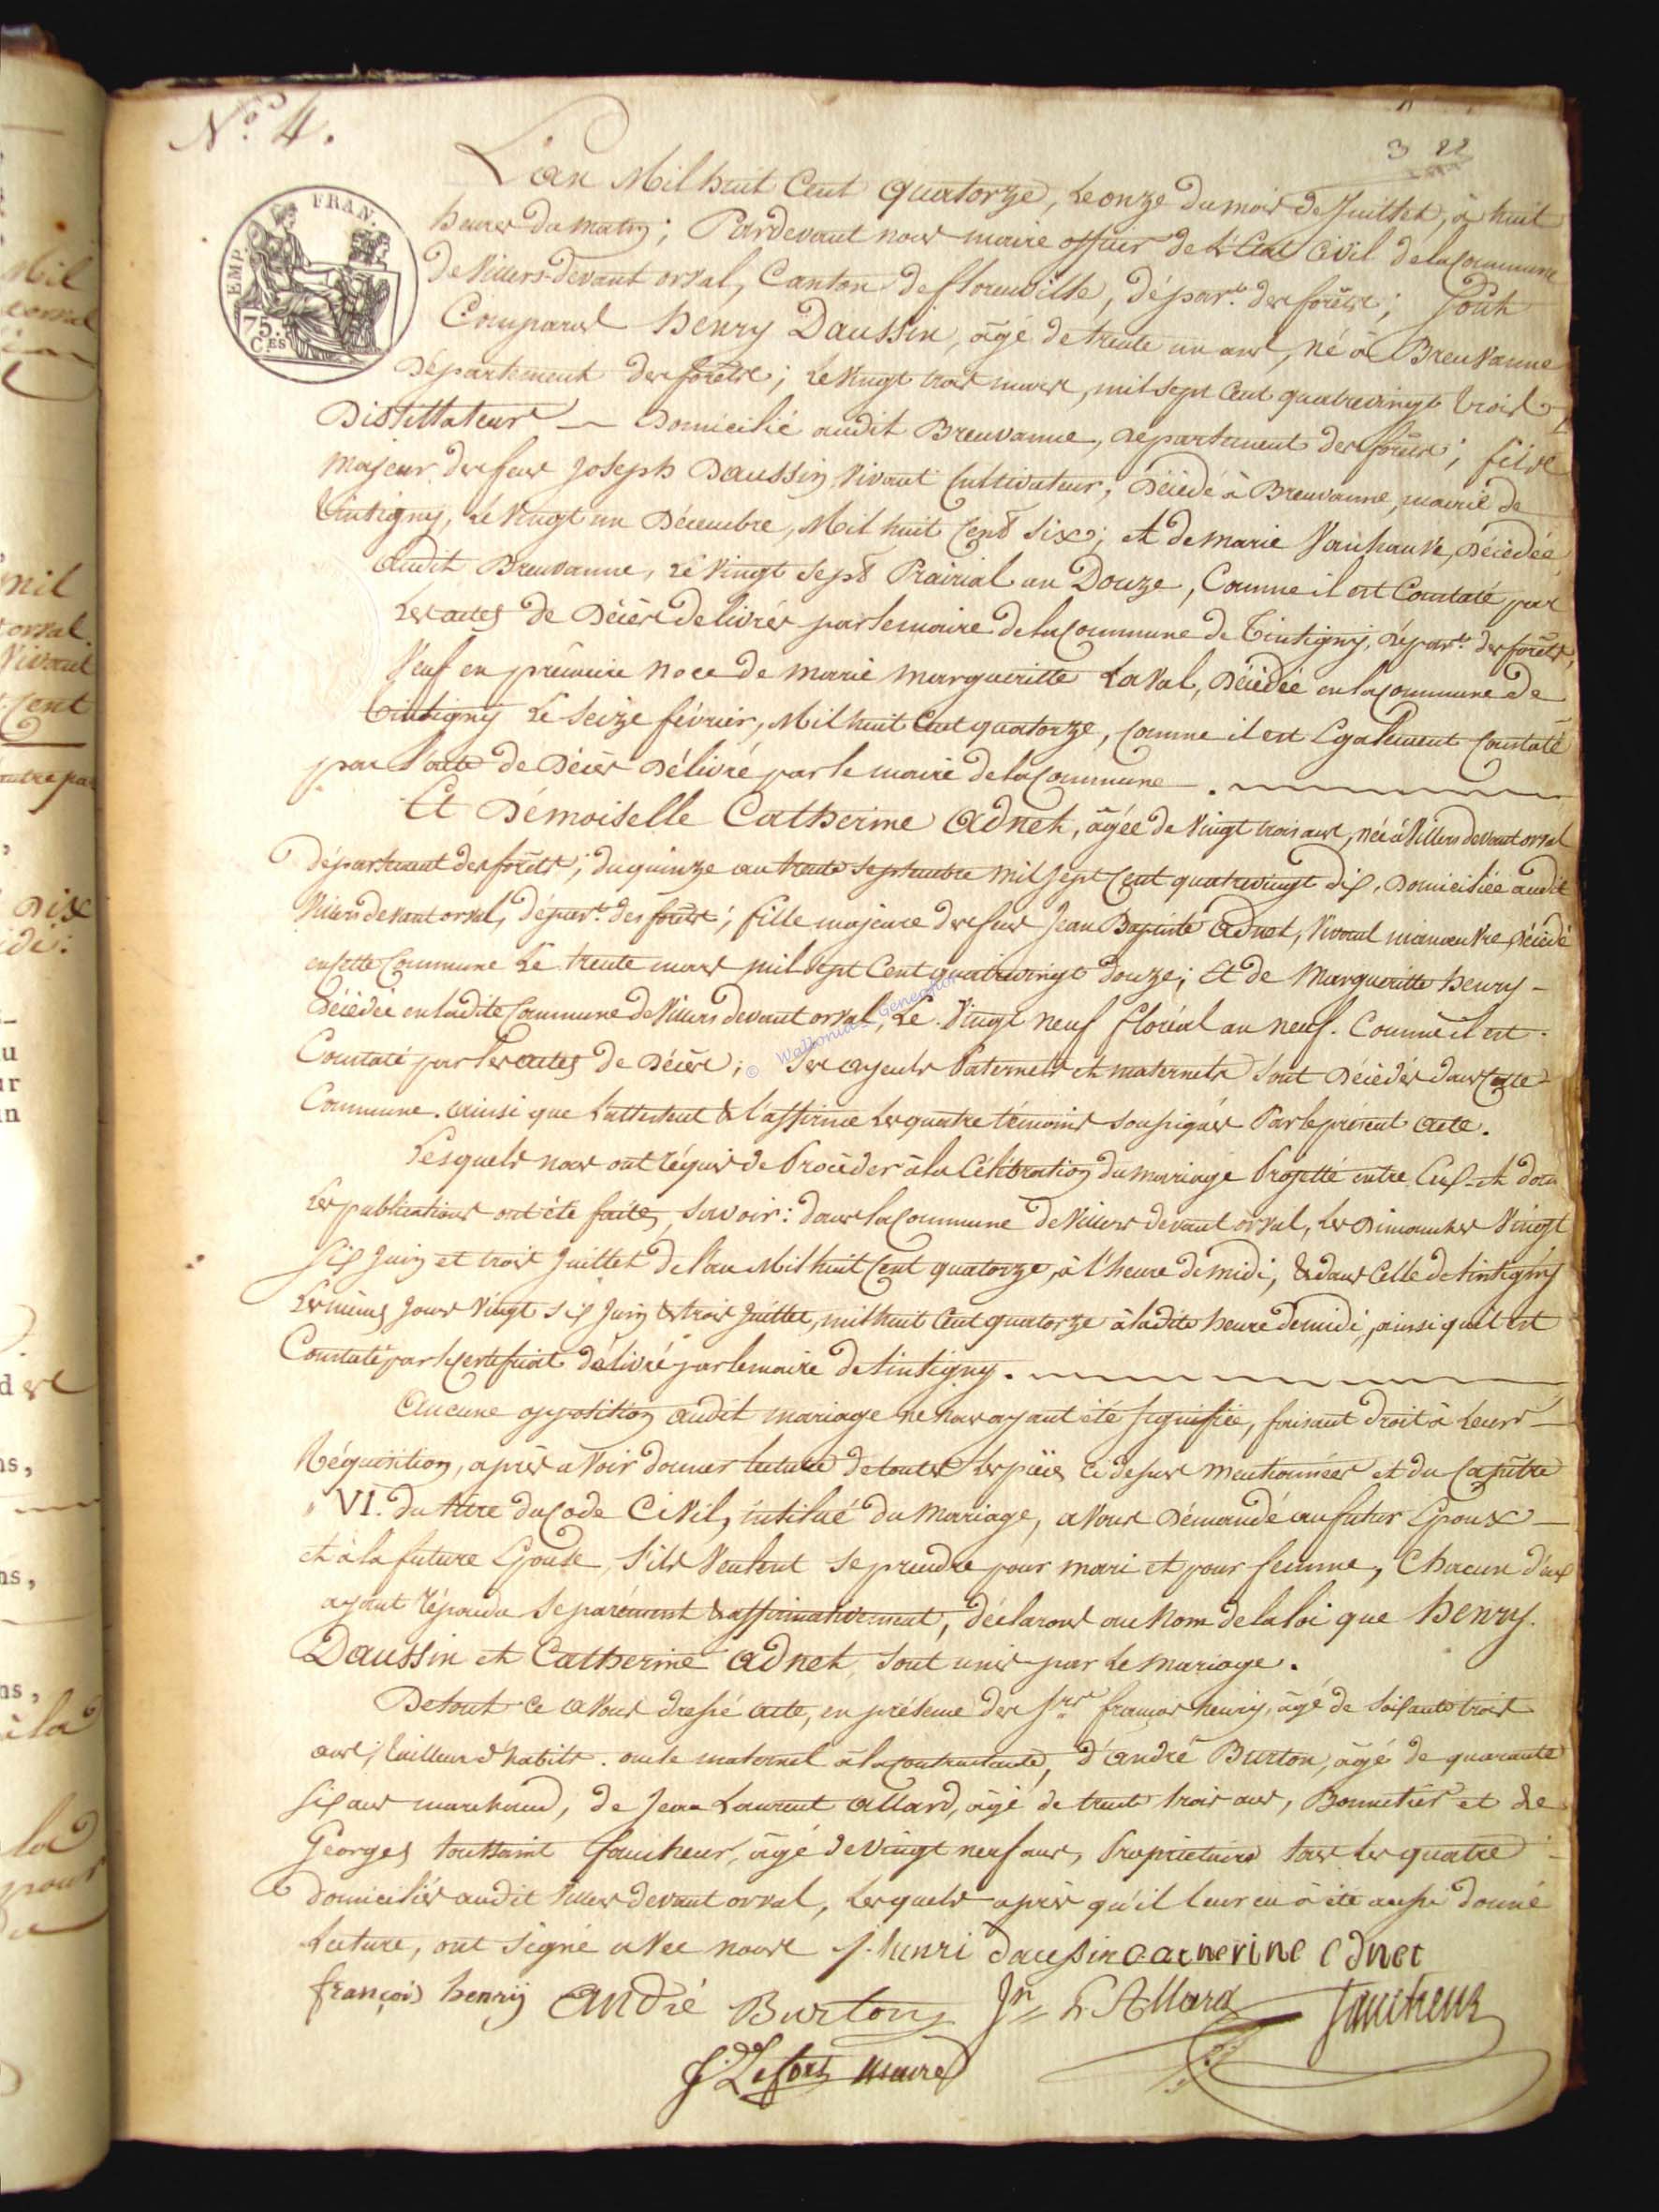 N.º 4.
3 22
EMP. FRAN.
75. C.ES
L'an Mil huit Cent quatorze, le onze du mois de Juillet, à huit
heures du matin; Pardevant nous maire officier de l'Etat Civil de la Commune
de Villers-devant orval, Canton de florenville, dépar.t des forêts; Sont
Comparus henry Daussin, âgé de trente un ans, né à Breuvanne
Département des forêts; le vingt trois mars, mil sept Cent quatrevingt trois
Distillateur — Domicilié audit Breuvanne, département des forêts; fils
majeur des feus Joseph Daussin vivant Cultivateur, Décédé à Breuvanne, mairie de
tintigny, le vingt un Décembre, Mil huit Cent six; et de marie Vauhauve, Décédée
audit Breuvanne, le vingt sept Prairial an Douze, Comme il est Constaté par
les actes de Décès délivrés par le maire de la Commune de Tintigny, dépar.t des forêts,
Veuf en prémiere noce de marie margueritte Laval, Décédée en la Commune de
tintigny le seize février, Mil huit Cent quatorze, comme il est Egalement Constaté
par l'acte de Décès Délivré par le maire de la Commune.
Et Démoiselle Catherine adnet, âgée de vingt trois ans, née à Villers devant orval
département des forêts; du quinze au trente septembre mil sept Cent quatrevingt dix, Domiciliée audit
Villers devant orval, dépar.t des forêts; fille majeure des feus Jean Baptiste adnet, vivant manoeuvre, Décédé
en cette Commune le trente mars mil sept Cent quatrevingt douze; et de Margueritte henry -
Décédée en ladite Commune de Villers devant orval, le vingt neuf floréal an neuf. Comme il est
Constaté par les actes de Décès; Ses ayeuls Paternels et maternels sont Décédés dans Cette
Commune. ainsi que l'attestent & l'affirme les quatre témoins soussignés Par le présent acte.
Lesquels nous ont réquis de Procéder à la Célébration du mariage Projetté entre Eux et dont
les publications ont été faites, savoir: dans la Commune de Villers devant orval, les Dimanches vingt
six Juin et trois Juillet de l'an Mil huit Cent quatorze, à l'heure de midi, & dans Celle de tintigny
les mêmes Jours vingt six Juin & trois Juillet, mil huit Cent quatorze à ladite heure de midi, ainsi qu'il est
Constaté par le Certificat délivré par le maire de tintigny.
Aucune opposition audit mariage ne nous ayant été signifiée, faisant droit à Leurs
Réquisition, après avoir donner lecture de toutes les pièces ci dessus mentionnées et du Capitre
VI. du titre du Code Civil, intitulé du Mariage, avons Démandé au futur Epoux
et à la future Epouse, s'ils veulent se prendre pour mari et pour femme, Chacun d'eux
ayant répondu séparément & affirmativement, déclarons au Nom de la loi que henry
Daussin et Catherine adnet sont unis par le mariage.
De tout ce avons dressé acte, en présence des Srs françois henry, âgé de soixante trois
ans, tailleur d'habits. oncle maternel à la Contractante, d'andré Burton, âgé de quarante
six ans marchand, de Jean Laurent allard, âgé de trente trois ans, Bonnetier et de
Georges toussaint faucheur, âgé de vingt neuf ans, Propriétaire tous les quatre
domiciliés audit Villers devant orval, lesquels après qu'il leur en à été aussi donné
lecture, ont signé avec nous J. henri daussin catherine adnet
françois henrÿ André Burton Jn L Allard faucheur
J. Lefort Maire
© Wallonia - Geneanet